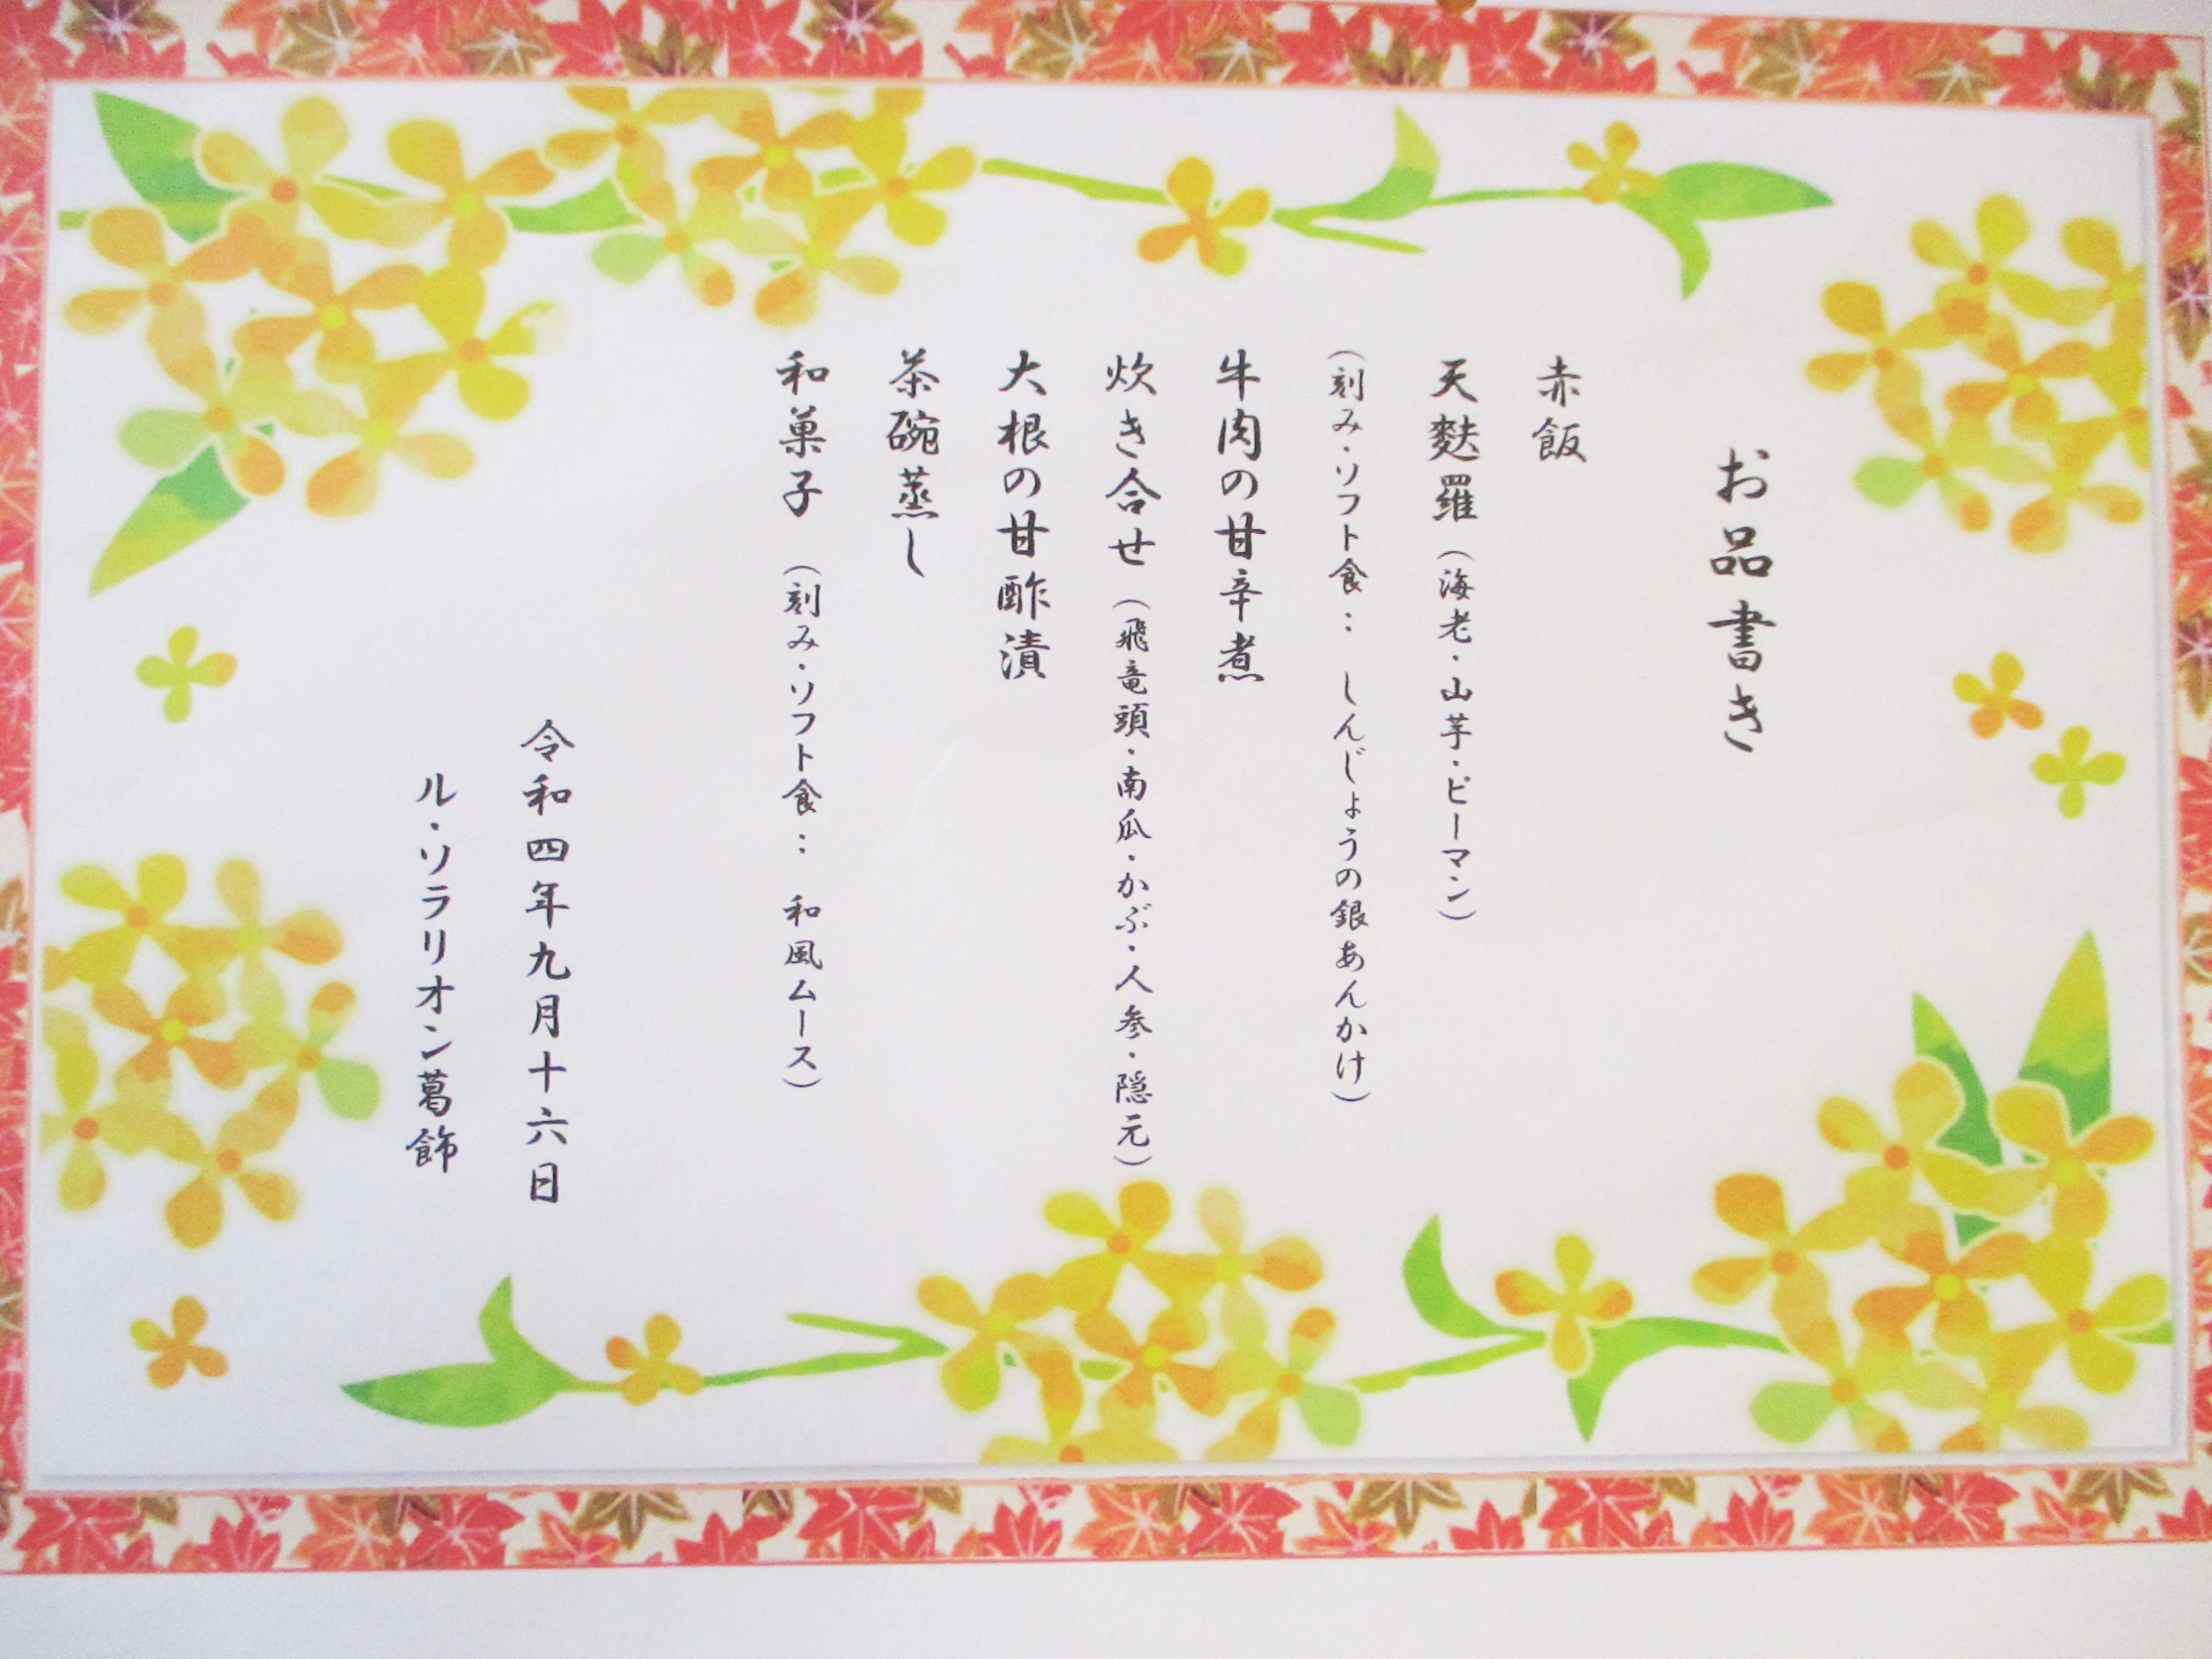 お品書き
赤飯
天麩羅（海老・山芋・ピーマン）
（刻み・ソフト食：　しんじょうの銀あんかけ）
牛肉の甘辛煮
炊き合せ（飛竜頭・南瓜・かぶ・人参・隠元）
大根の甘酢漬
茶碗蒸し
和菓子（刻み・ソフト食：　和風ムース）
令和四年九月十六日
ル・ソラリオン葛飾